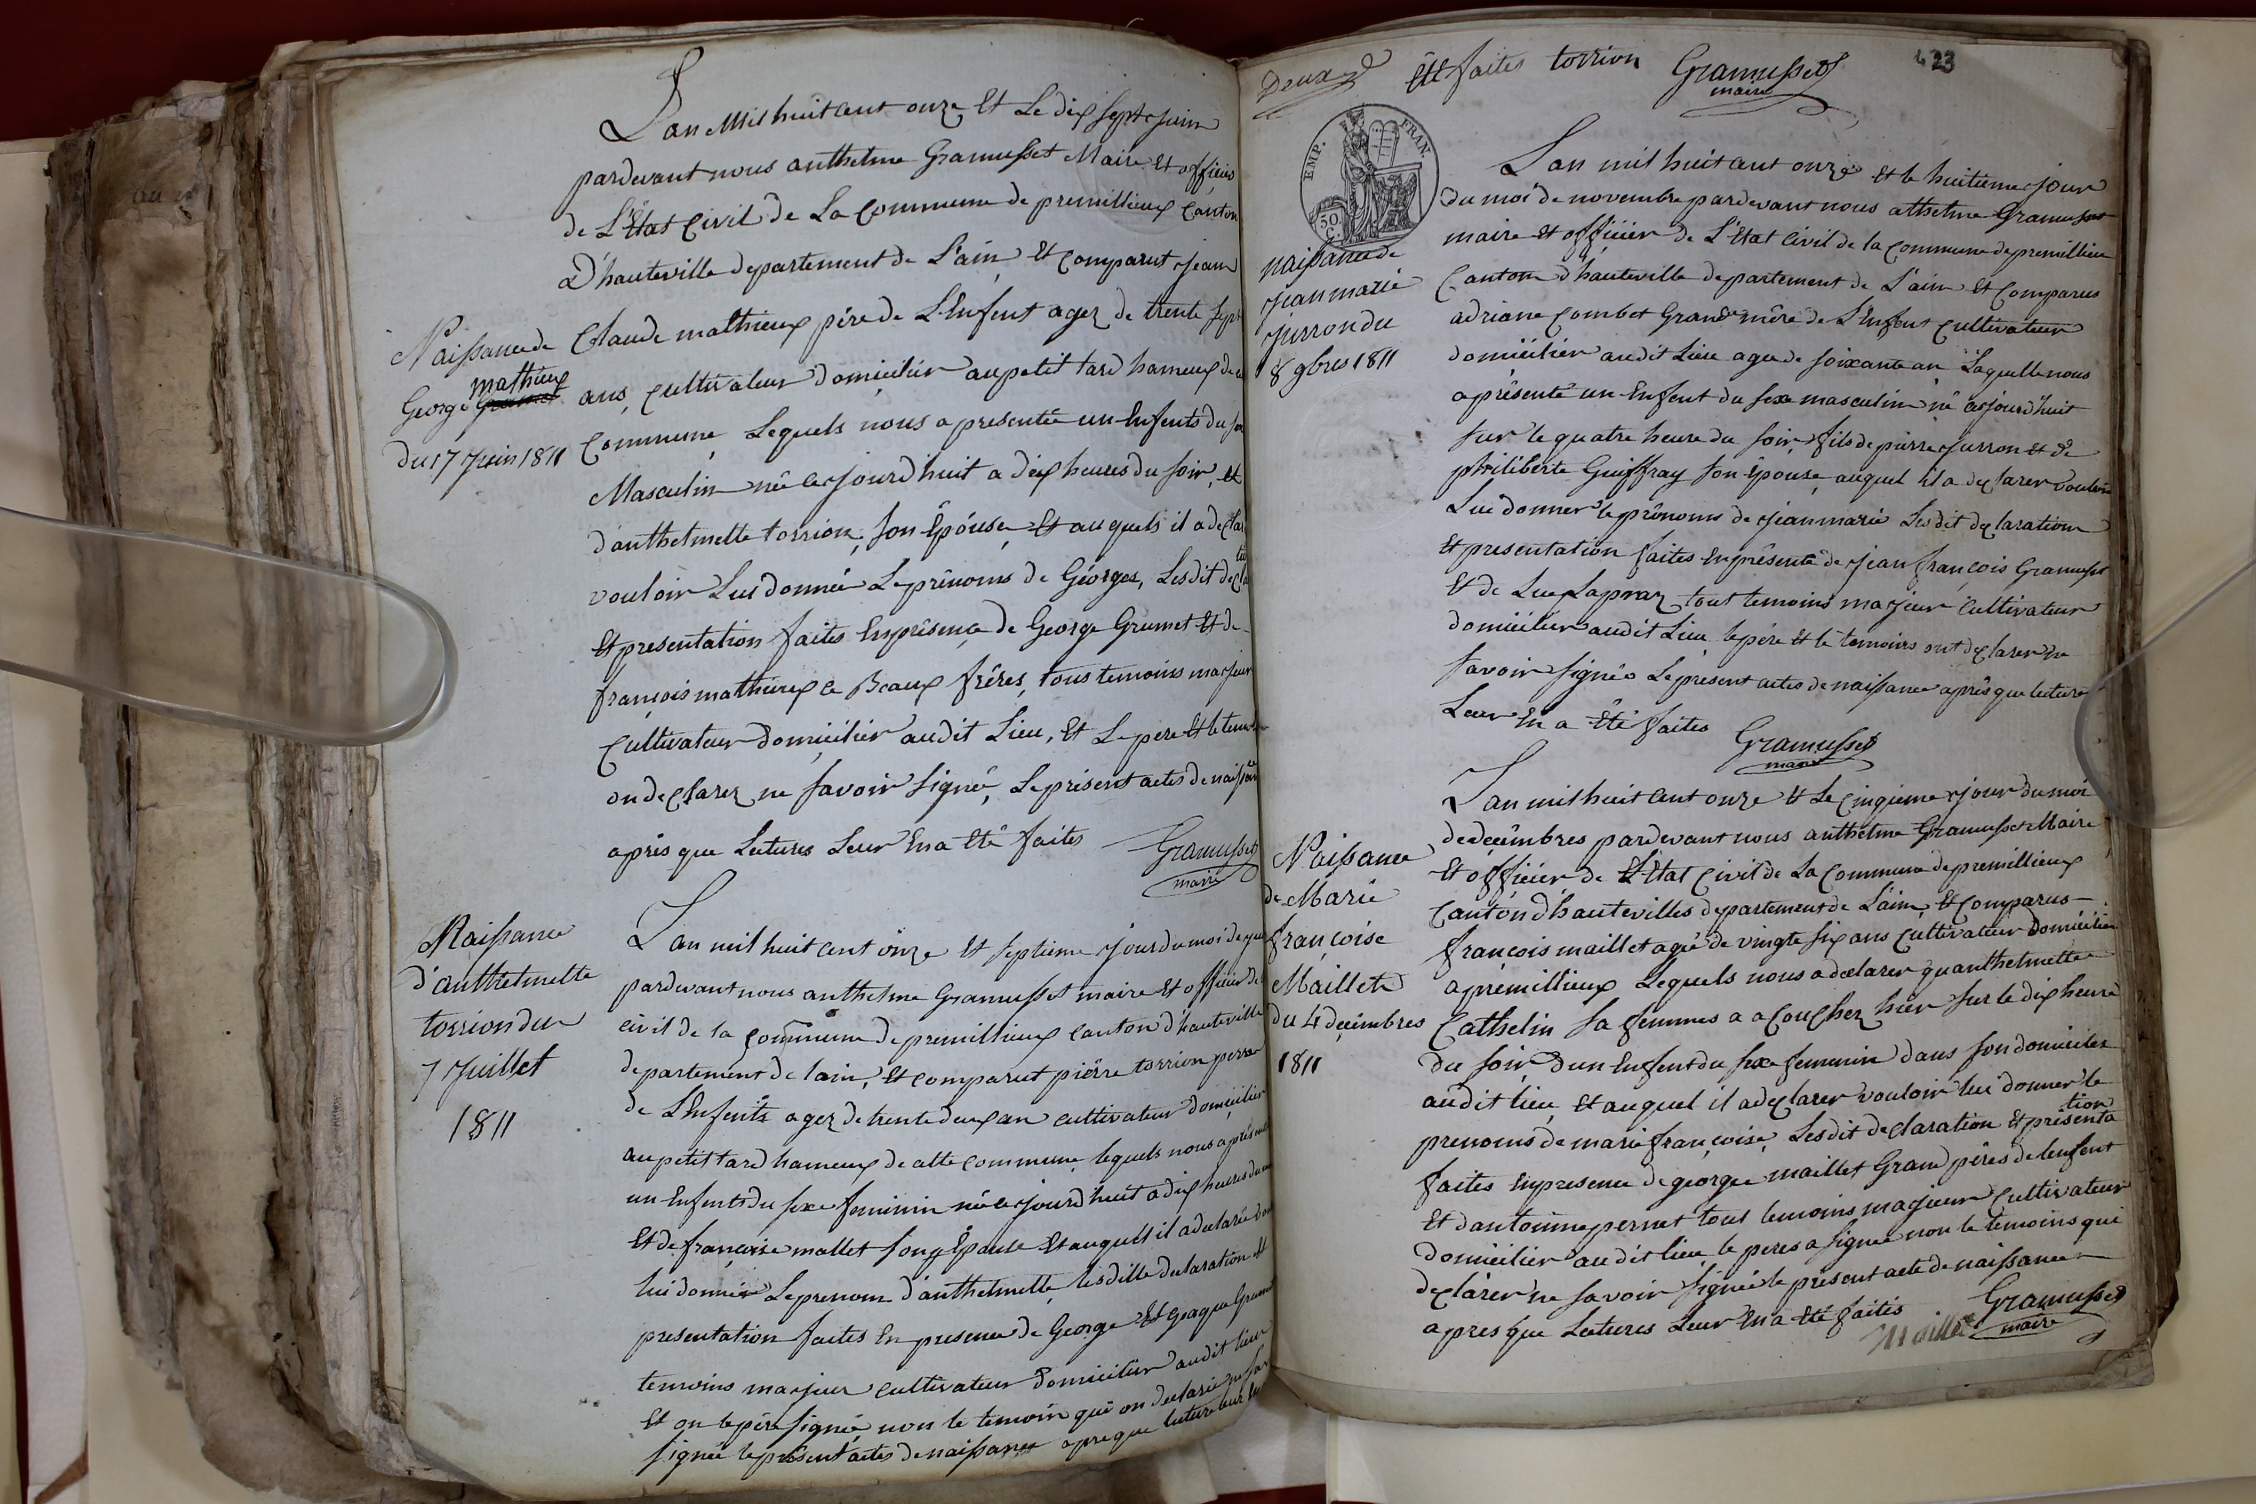 L'an mil huit cent onze Et Le dix sept juin
pardevant nous anthelme Gramusset Maire Et officier
de L'Etat Civil de La Commune de premillieux Canton
D'hauteville departement de L'ain Et Comparut Jean
Naissance de
George mathieux
du 17 Juin 1811
Claude mathieux pére de L'Enfent agez de trente sept
ans, Cultivateur Domicilier au petit tard hameux de
Commune, Lequels nous a presentée un Enfents du
Masculin né ce jourd'huit a dix heures du soir, et
d'anthelmette torrion, son Épouse, Et auquels il a declar
vouloir Lui donnée Le prénoms de Géorges, Les dit decla
Et presentation faites En présence de George Grumet Et de
françois mathieux ce Beaux frêres, tous temoins majeur
Cultivateur Domicilier audit Lieu, Et Le pere Et le temoin
on declarez ne savoir signé, Le présent actes de naissance
aprés que Lectures Leur En a Été faites Gramusset
maire
Naissance
d'anthelmette
torrion du
7 Juillet
1811
L'an mil huit cent onze Et septieme jour du moi de
pardevant nous anthelme Gramusset maire Et officier de
civil de la Commune de premillieux Canton d'hauteville
departement de lain, Et comparut piérre torrion perre
de L'Enfents agez de trente deux an cultivateur domicilier
au petit tard hameux de cette commune lequels nous a présenté
un Enfents du sexe feminin né ce jourd'huit a dix heures du
Et de françoise mallet song Épouse Et auquels il a declarée
lui donnér Le prenom d'anthelmette, les ditte declaration Et
presentation faites En presence de George Et
temoins majeur cultivateur domicilier audit lieu
Et on le pére signée non le temoin qui on declarée ne
signée le présent actes de naissance apre que lecture leur En
Deux
Été faites torrion Gramusset
maire
423
EMP. FRAN.
50
C.
naissance de
jean marie
jurron du
8 9bres 1811
L'an mil huit cent onze et le huitieme jour
du moi de novembre pardevant nous athelme Gramusset
maire Et officier de L'Etat Civil de la Commune de premillieu
Canton d'hauteville departement de L'ain Et Comparus
adriane Combet Grand mére de L'Enfent Cultivateur
domicilier audit Lieu agee de soixante an Laquelle nous
a présenté un Enfent du sexe masculin né ce jourd'huit
sur le quatre heure du soir, fils de piérre jurron et de
philiberte Guiffray son épouse, auquel il a declarer vouloir
Lui donner le prénoms de jean marie Les dit declaration
Et presentation faites En présente de jean françois Gramusset
Et de Luc Lapraz tout temoins majeur Cultivateur
domicilier audit Lieu, le pére Et le temoins ont declarer ne
savoir signée Le present actes de naissance aprés que lecture
Leur En a Été faites Gramusset
maire
Naissance
de Marie
françoise
Maillet
du 4 decimbres
1811
L'an mil huit cent onze Et Le cinqieme jour du moi
de decémbres pardevant nous anthelme Gramusset Maire
Et officiér de L'Etat Civil de La Commune de premillieux
Canton d'hautevilles departement de L'ain Et Comparus
françois maillet agé de vingte six ans Cultivateur domicilier
a premillieux Lequels nous a declarer qu'anthelmette
Cathelin sa femmes a acouchez hier sur le dix heure
du soir d'un Enfent du sexe feminin dans son domiciles
audit lieu Et auquel il a declarer vouloir lui donner le
prenoms de marie françoise, Les dit declaration Et présentation
faites En presence de george maillet Grand péres de lenfent
Et d'antoinne pernet tout temoins majieur Cultivateur
domicilier audit lieu, le peres a signee non le temoins qui
declarér ne savoir signée le présent acte de naissance
apres que Lectures Leur En a Été faités Gramusset
maillet maire